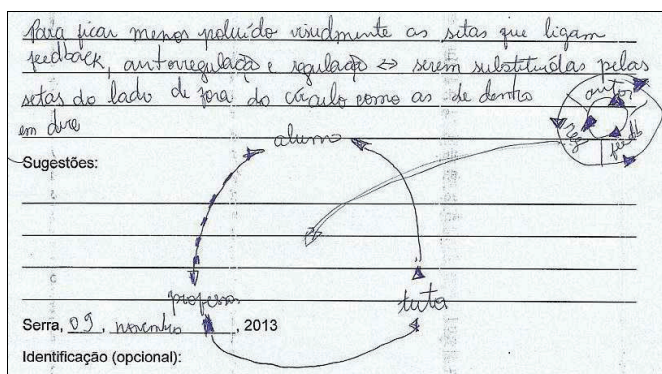 Para ficar menos poluído visualmente as setas que ligam
feedback, autorregulação e regulação ⇔ serem substituídas pelas
setas do lado de fora do círculo como as de dentro
em
autor
reg
feedb
aluno
Sugestões:
professor
tutor
Serra, 09, novembro, 2013
Identificação (opcional):